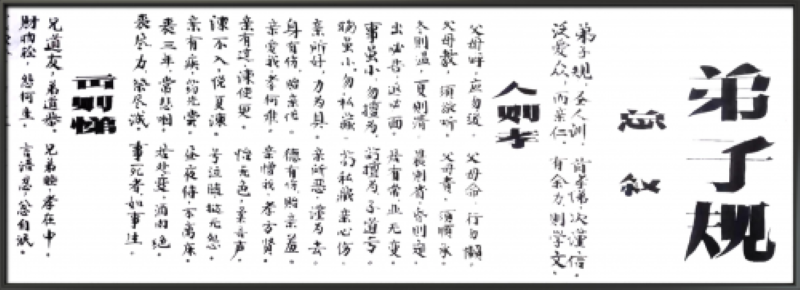 弟子规
总叙
弟子规，圣人训，首孝悌，次谨信。
泛爱众，而亲仁，有余力，则学文。
入则孝
父母呼，应勿缓，父母命，行勿懒。
父母教，须敬听，父母责，须顺承。
冬则温，夏则凊，晨则省，昏则定。
出必告，返必面，居有常，业无变。
事虽小，勿擅为，苟擅为，子道亏。
物虽小，勿私藏，苟私藏，亲心伤。
亲所好，力为具，亲所恶，谨为去。
身有伤，贻亲忧，德有伤，贻亲羞。
亲爱我，孝何难，亲憎我，孝方贤。
亲有过，谏使更，怡吾色，柔吾声。
谏不入，悦复谏，号泣随，挞无怨。
亲有疾，药先尝，昼夜侍，不离床。
丧三年，常悲咽，居处变，酒肉绝。
丧尽礼，祭尽诚，事死者，如事生。
出则悌
兄道友，弟道恭，兄弟睦，孝在中。
财物轻，怨何生，言语忍，忿自泯。